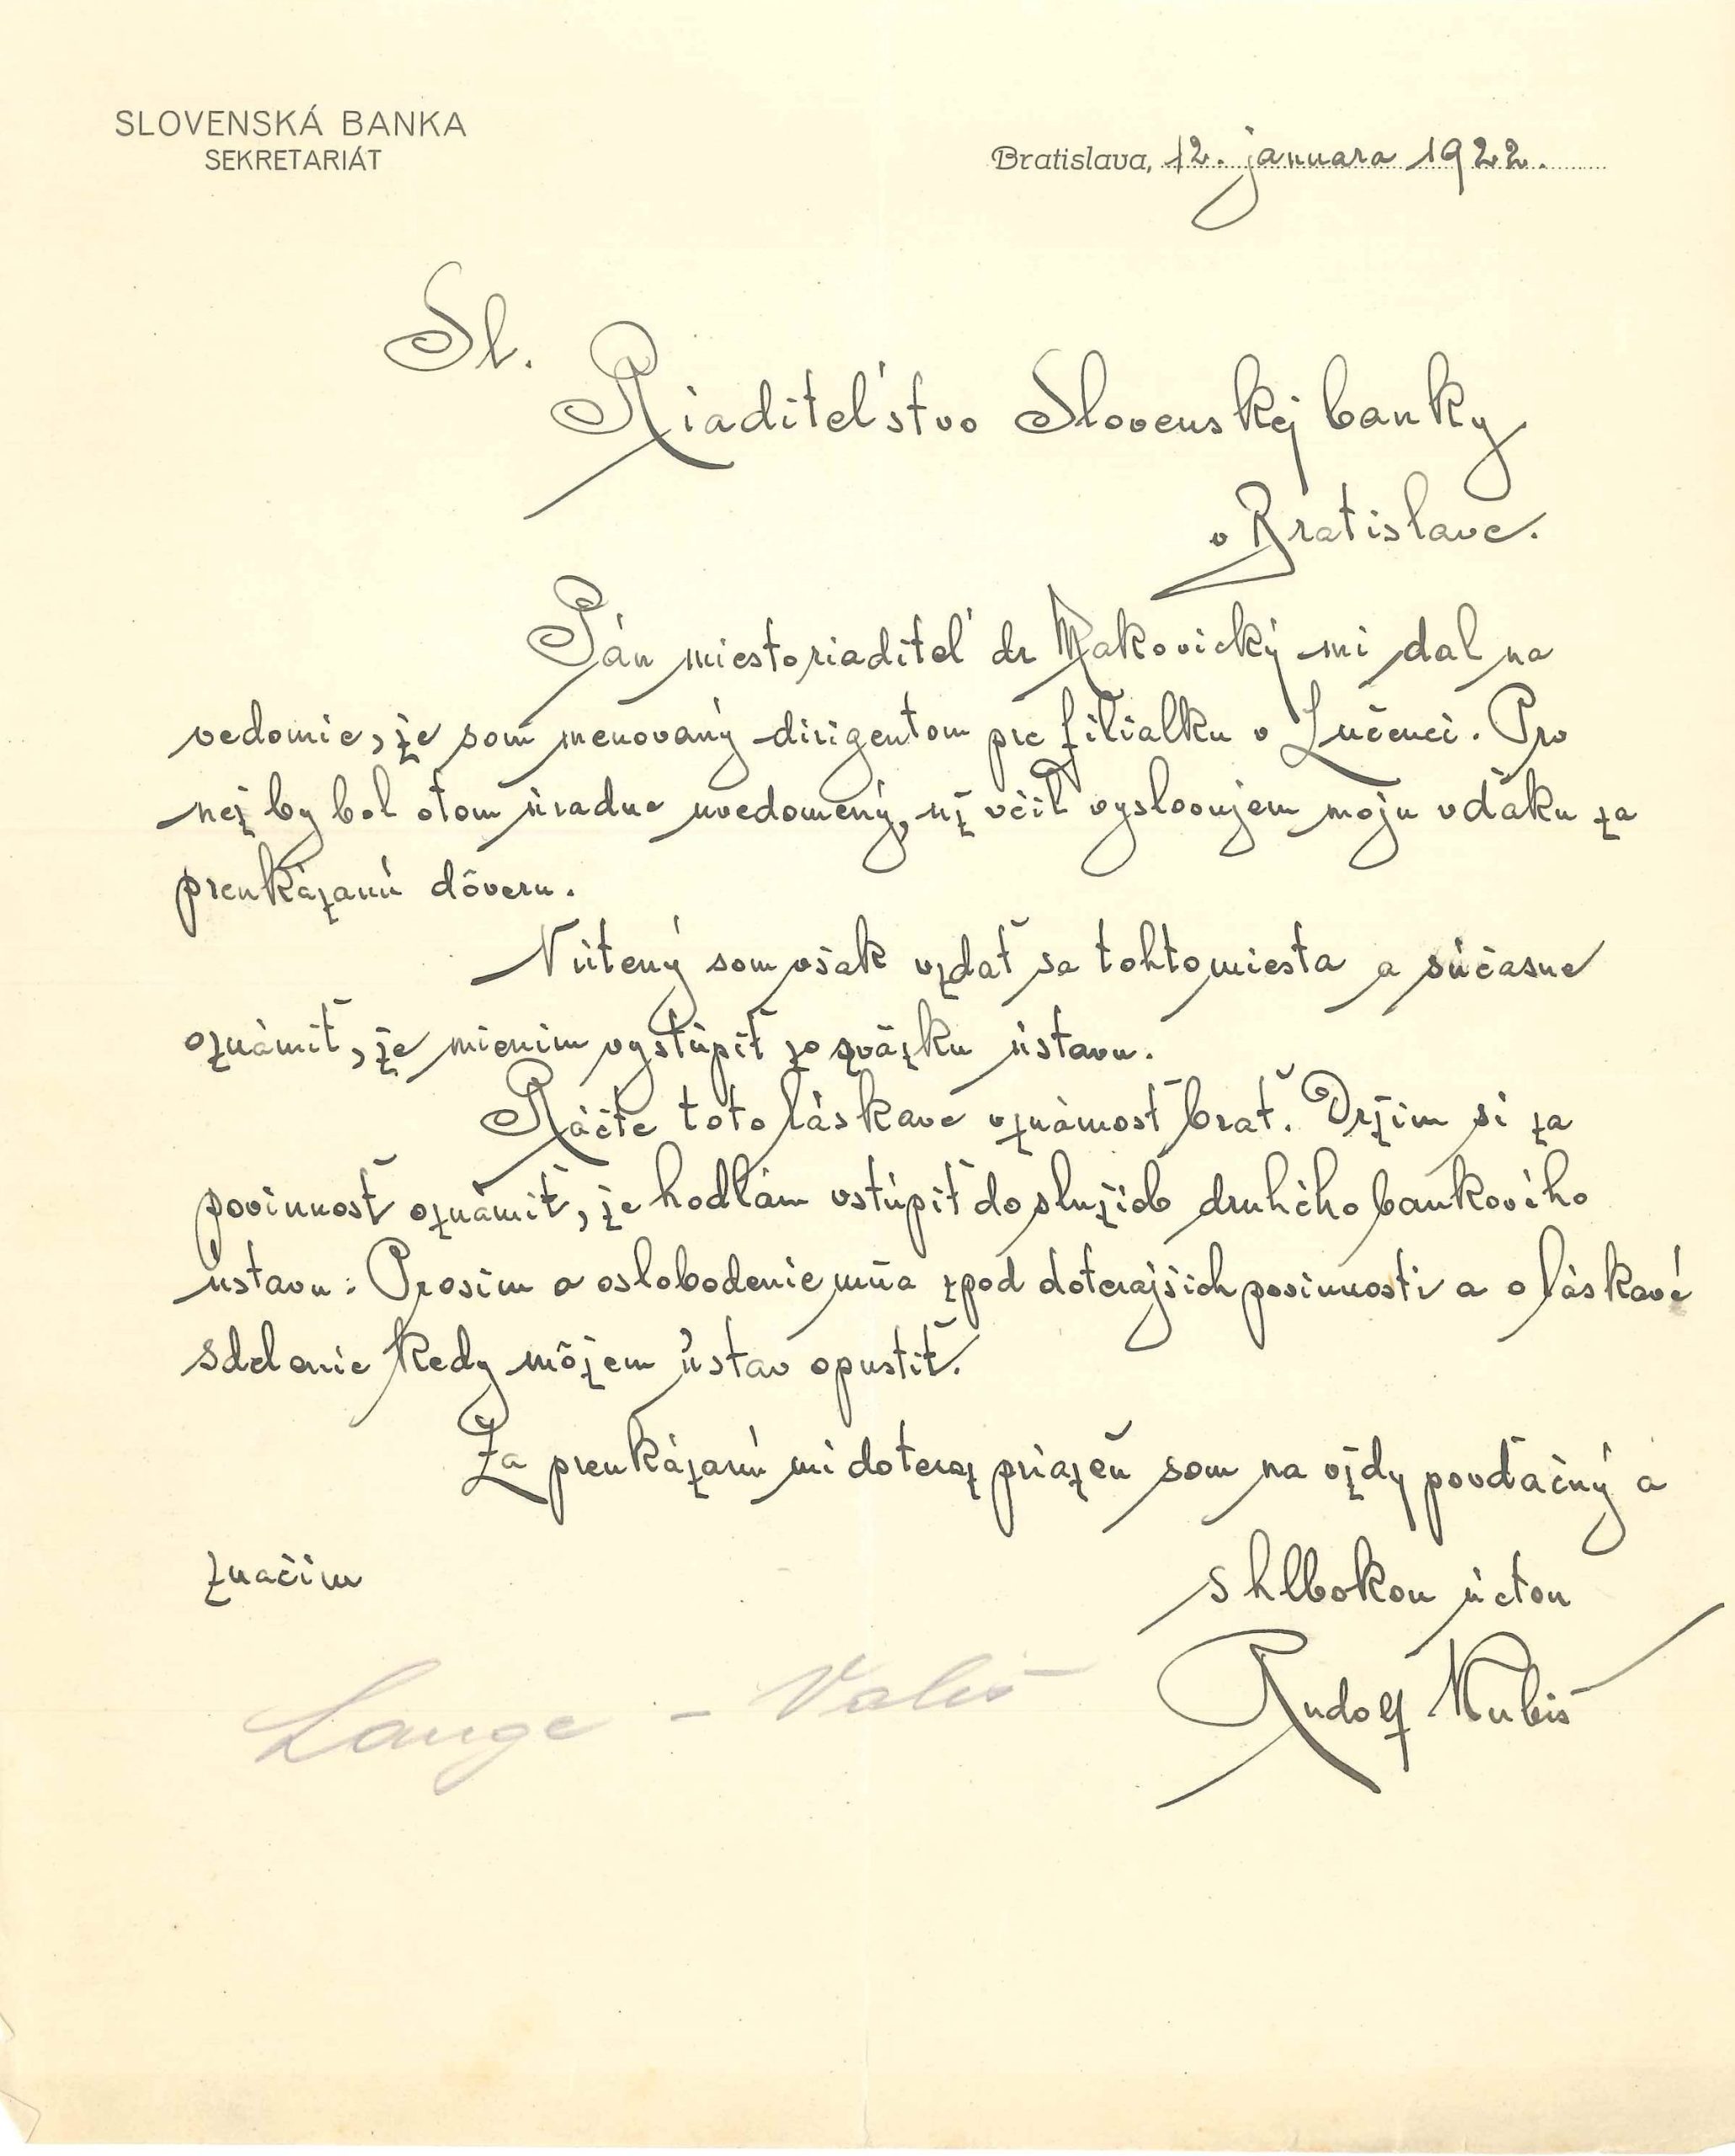 SLOVENSKÁ BANKA
SEKRETARIÁT
Bratislava, 12. januara 1922.
Sl.
Riaditeľstvo Slovenskej banky
v Bratislave.
Pán miestoriaditeľ dr Makovický mi dal na
vedomie, že som menovaný dirigentom pre filialku v Lučenci. Prv
než by bol otom úradne uvedomený, už včil vyslovujem moju vďaku za
preukázanú dôveru.
Nútený som však vzdať sa tohto miesta a súčasne
oznámiť, že mienim vystúpiť zo sväzku ústavu.
Ráčte toto láskave vznámosť brať. Držím si za
povinnosť oznámiť, že hodlám vstúpiť do služieb druhého bankového
ústavu. Prosím o oslobodenie mňa zpod doterajších povinností a o láskavé
sdelenie kedy môžem ústav opustiť.
Za preukázanú mi doteraz priazeň som na vždy povďačný a
značím
s hlbokou úctou
Rudolf Kubiš
Lange -